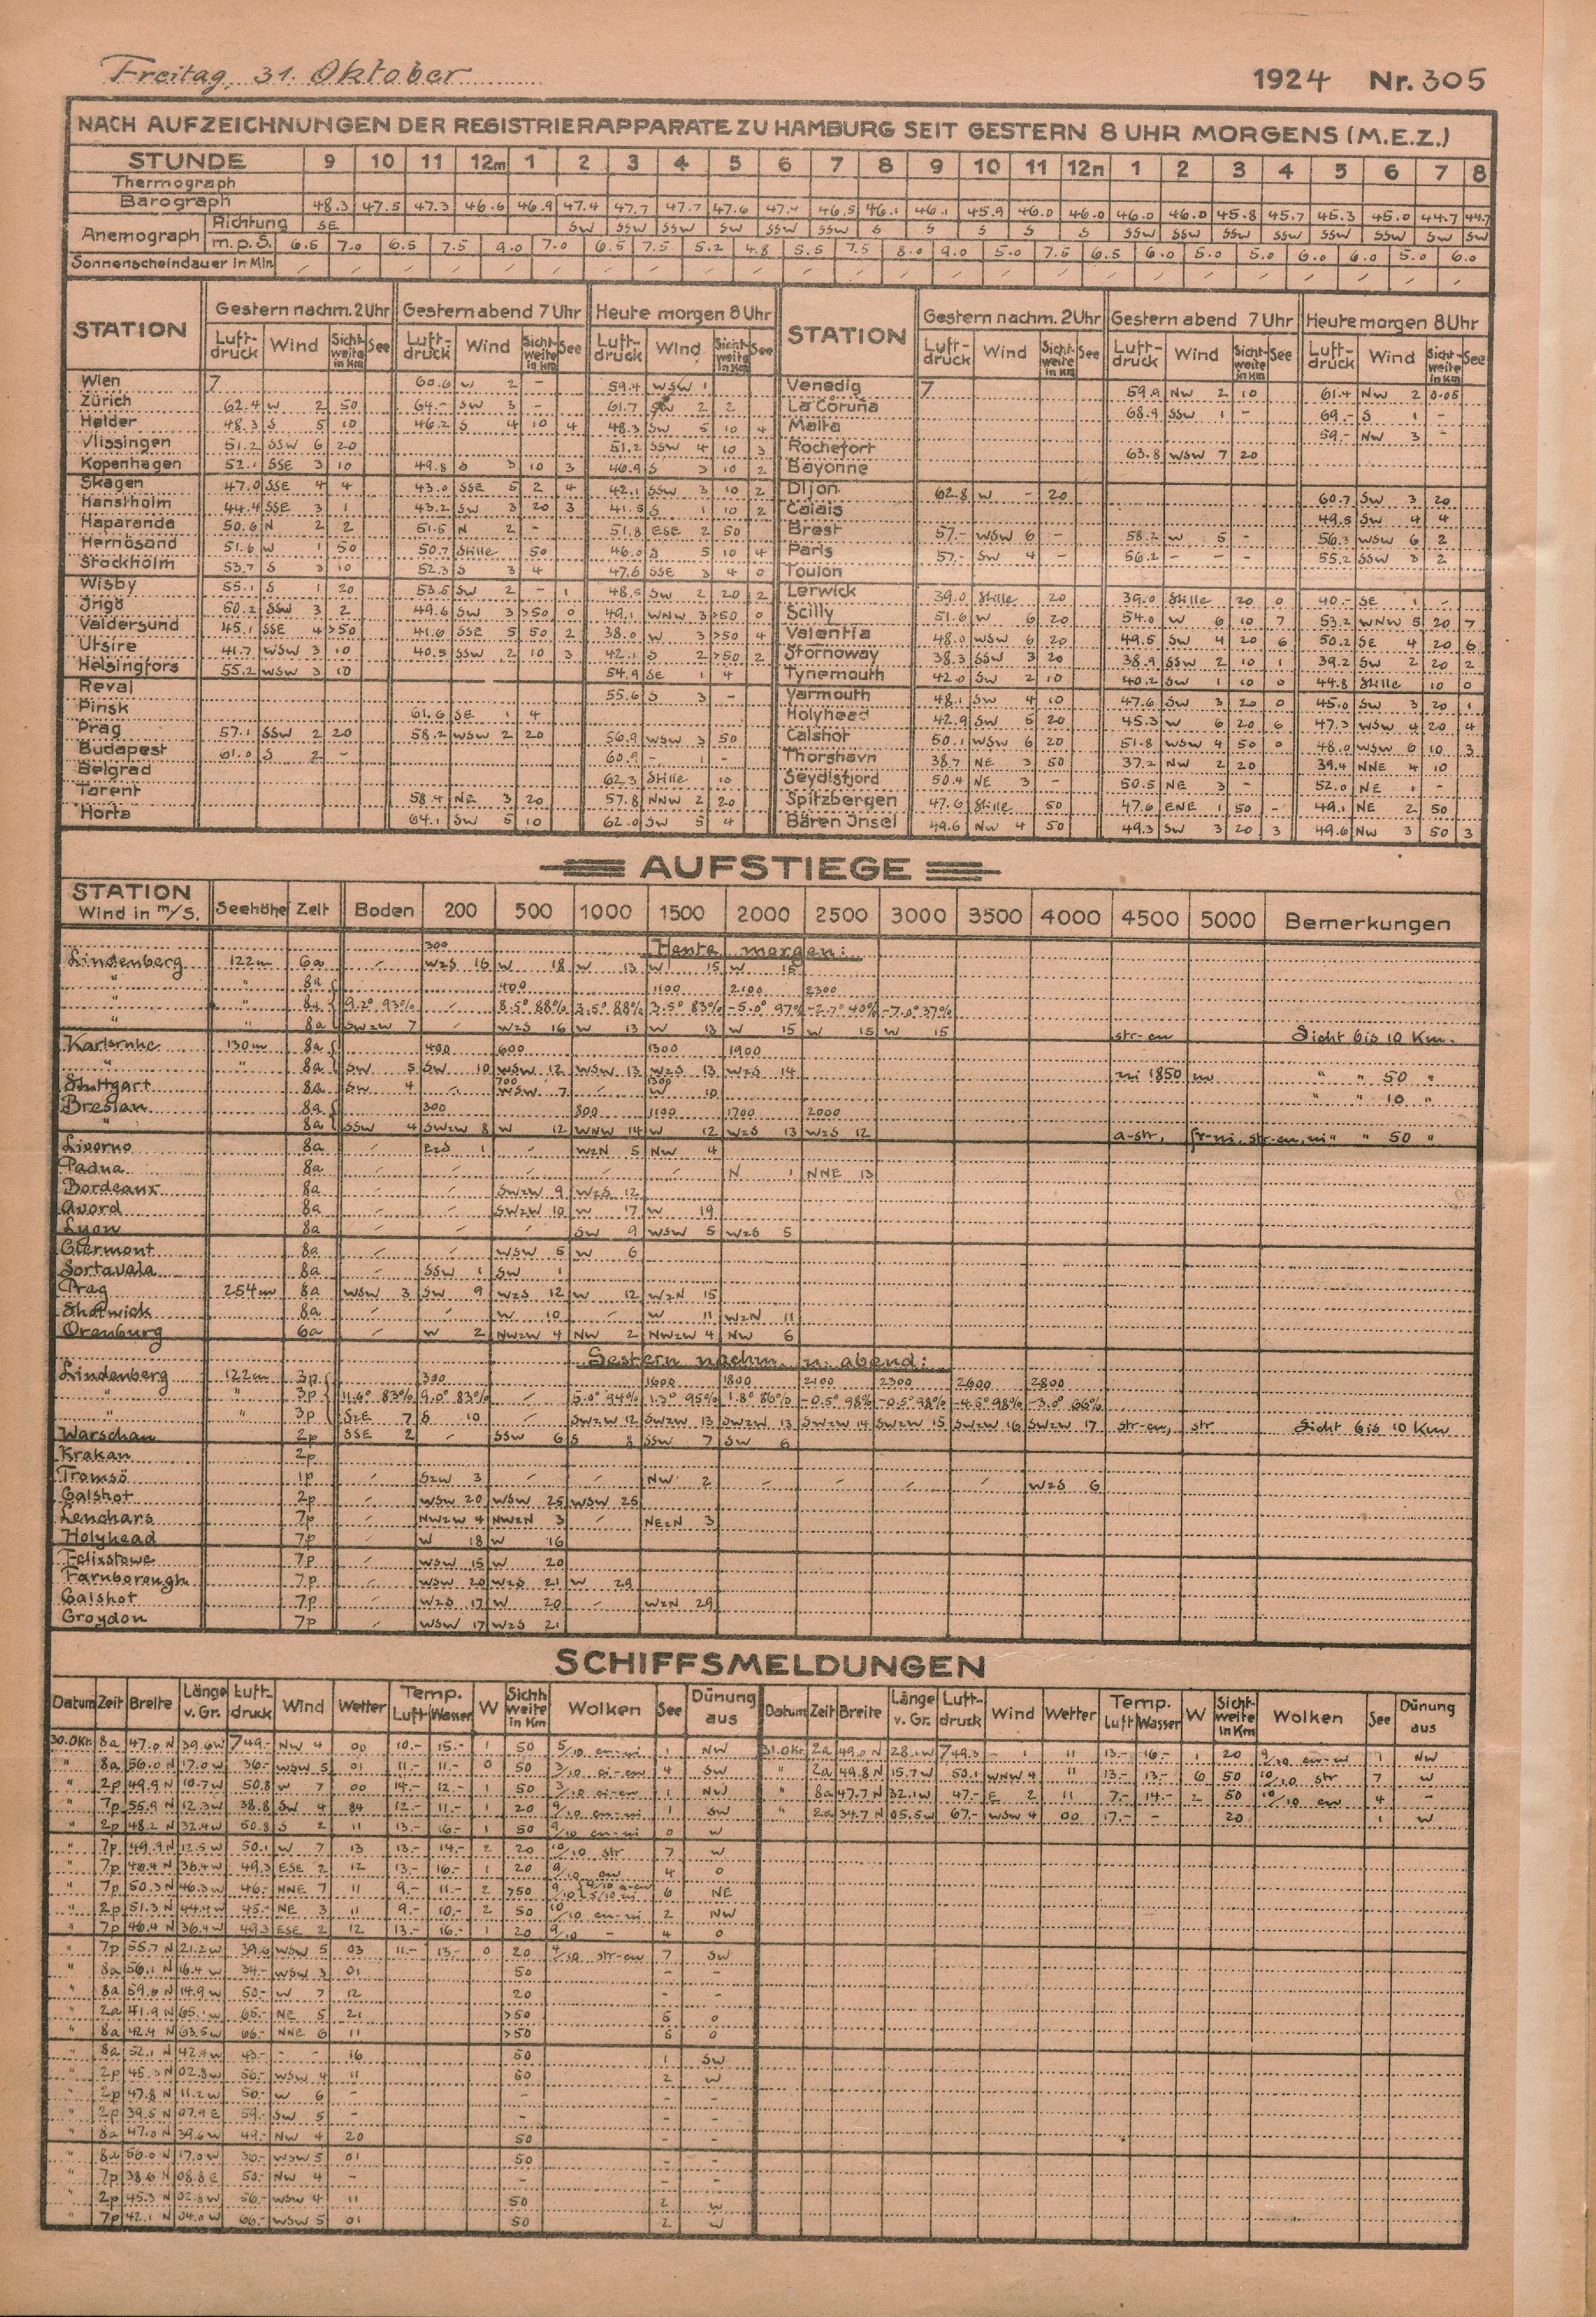 Freitag, 31. Oktober 1924 Nr. 305
NACH AUFZEICHNUNGEN DER REGISTRIERAPPARATE ZU HAMBURG SEIT GESTERN 8 UHR MORGENS (M.E.Z.)
STUNDE 9 10 11 12m 1 2 3 4 5 6 7 8 9 10 11 12n 1 2 3 4 5 6 7 8
Thermograph
Barograph 48.3 47.5 47.3 46.6 46.9 47.4 47.7 47.7 47.6 47.4 46.5 46.1 46.1 45.9 46.0 46.0 46.0 46.0 45.8 45.7 45.3 45.0 44.7 44.7
Anemograph Richtung SE SW SSW SSW SW SSW SSW S S S S S SSW SSW SSW SSW SSW SSW SW SW
m.p.S. 6.5 7.0 6.5 7.5 9.0 7.0 6.5 7.5 5.2 4.8 5.5 7.5 8.0 9.0 5.0 7.5 6.5 6.0 5.0 5.0 6.0 6.0 5.0 6.0
Sonnenscheindauer in Min.
STATION Gestern nachm. 2 Uhr Gestern abend 7 Uhr Heute morgen 8 Uhr STATION Gestern nachm. 2 Uhr Gestern abend 7 Uhr Heute morgen 8 Uhr
Luft-druck Wind Sicht-weite in Km See Luft-druck Wind Sicht-weite in Km See Luft-druck Wind Sicht-weite in Km See Luft-druck Wind Sicht-weite in Km See Luft-druck Wind Sicht-weite in Km See Luft-druck Wind Sicht-weite in Km See
Wien 7 60.6 W 2 - 59.4 WSW 1 Venedig 7 59.9 NW 2 10 61.4 NW 2 0.05
Zürich 62.4 W 2 50 64.- SW 3 - 61.7 SW 2 2 La Coruña 68.9 SSW 1 - 69.- S 1 -
Helder 48.3 S 5 10 46.2 S 4 10 4 48.3 SW 5 10 4 Malta 59.- NW 3 -
Vlissingen 51.2 SSW 6 20 51.2 SSW 4 10 3 Rochefort 63.8 WSW 7 20
Kopenhagen 52.1 SSE 3 10 49.8 S 3 10 3 46.9 S 3 10 2 Bayonne
Skagen 47.0 SSE 4 4 43.0 SSE 5 2 4 42.1 SSW 3 10 2 Dijon 62.8 W - 20 60.7 SW 3 20
Hanstholm 44.4 SSE 3 1 43.2 SW 3 20 3 41.5 S 1 10 2 Calais 49.5 SW 4 4
Haparanda 50.6 N 2 2 51.5 N 2 - 51.8 ESE 2 50 Brest 57.- WSW 6 - 58.2 W 5 - 56.3 WSW 6 2
Hernösand 51.6 W 1 50 50.7 Stille 50 46.0 S 5 10 4 Paris 57.- SW 4 - 56.2 - - - 55.2 SSW 3 2
Stockholm 53.7 S 3 10 52.3 S 3 4 47.6 SSE 3 4 0 Toulon
Wisby 55.1 S 1 20 53.5 SW 2 - 1 48.5 SW 2 20 2 Lerwick 39.0 Stille 20 39.0 Stille 20 0 40.- SE 1 -
Ingö 50.2 SSW 3 2 49.6 SW 3 >50 0 49.1 WNW 3 >50 0 Scilly 51.6 W 6 20 54.0 W 6 10 7 53.2 WNW 5 20 7
Valdersund 45.1 SSE 4 >50 41.6 SSE 5 50 2 38.0 W 3 >50 4 Valentia 48.0 WSW 6 20 49.5 SW 4 20 6 50.2 SE 4 20 6
Utsire 41.7 WSW 3 10 40.5 SSW 2 10 3 42.1 S 2 >50 2 Stornoway 38.3 SSW 3 20 38.9 SSW 2 10 1 39.2 SW 2 20 2
Helsingfors 55.2 WSW 3 10 54.9 SE 1 4 Tynemouth 42.0 SW 2 10 40.2 SW 1 10 0 44.8 Stille 10 0
Reval 55.6 S 3 - Yarmouth 48.1 SW 4 10 47.6 SW 3 20 0 45.0 SW 3 20 1
Pinsk 61.6 SE 1 4 Holyhead 42.9 SW 5 20 45.3 W 6 20 6 47.3 WSW 4 20 4
Prag 57.1 SSW 2 20 58.2 WSW 2 20 56.9 WSW 3 50 Calshot 50.1 WSW 6 20 51.8 WSW 4 50 0 48.0 WSW 6 10 3
Budapest 61.0 S 2 - 60.9 - 1 - Thorshavn 38.7 NE 3 50 37.2 NW 2 20 39.4 NNE 4 10
Belgrad 62.3 Stille 10 Seydisfjord 50.4 NE 3 - 50.5 NE 3 - 52.0 NE 1 -
Tarent 58.4 NE 3 20 57.8 NNW 2 20 Spitzbergen 47.6 Stille 50 47.6 ENE 1 50 - 49.1 NE 2 50
Horta 64.1 SW 5 10 62.0 SW 5 4 Bären Insel 49.6 NW 4 50 49.3 SW 3 20 3 49.6 NW 3 50 3
AUFSTIEGE
STATION Wind in m/S. Seehöhe Zeit Boden 200 500 1000 1500 2000 2500 3000 3500 4000 4500 5000 Bemerkungen
300 Heute morgen:
Lindenberg 122m 6a - WzS 16 W 18 W 13 W 15 W 15
" " 8a 400 1100 2100 2300
" " 8a 9.2° 93% - 8.5° 88% 3.5° 88% 3.5° 83% -5.0° 97% -2.7° 40% -7.0° 37%
" " 8a SWzW 7 - WzS 16 W 13 W 13 W 15 W 15 W 15 str-cu Sicht bis 10 Km.
Karlsruhe 130m 8a 400 600 1300 1900
" " 8a SW 5 SW 10 WSW 12 WSW 13 WzS 13 WzS 14 ni 1850 m " " 50 "
Stuttgart 8a SW 4 - 700 WSW 7 - 1300 W 10 " " 10 "
Breslau 8a 300 800 1100 1700 2000
" 8a SSW 4 SWzW 8 W 12 WNW 14 W 12 WzS 13 WzS 12 a-str, fr-ni, str-cu, ni " " 50 "
Livorno 8a EzS 1 - WzN 5 NW 4
Padua 8a - - - - - N 1 NNE 13
Bordeaux 8a - - SWzW 9 WzS 12
Avord 8a - - SWzW 10 W 17 W 19
Lyon 8a - - - SW 9 WSW 5 WzS 5
Clermont 8a - - WSW 5 W 6
Sortavala 8a - SSW 1 SW 1
Prag 254m 8a WSW 3 SW 9 WzS 12 W 12 WzN 15
Shotwick 8a - - W 10 - W 11 WzN 11
Orenburg 6a - W 2 NWzW 4 NW 2 NWzW 4 NW 6
Gestern nachm. u. abend:
Lindenberg 122m 3p 300 1600 1800 2100 2300 2600 2800
" " 3p 11.6° 83% 9.0° 83% - 5.0° 94% 1.3° 95% 1.8° 86% -0.5° 98% -0.5° 98% -4.5° 98% -3.0° 66%
" " 3p SzE 7 S 10 - SWzW 12 SWzW 13 SWzW 13 SWzW 14 SWzW 15 SWzW 16 SWzW 17 str-cu, str Sicht bis 10 Km
Warschau 2p SSE 2 - SSW 6 S 8 SSW 7 SW 6
Krakau 2p
Tromsö 1p - SzW 3 - - NW 2 - - - - WzS 6
Calshot 2p - WSW 20 WSW 25 WSW 25
Leuchars 7p - NWzW 4 NWzN 3 - NEzN 3
Holyhead 7p - W 18 W 16
Felixstowe 7p - WSW 15 W 20
Farnborough 7p - WSW 20 WzS 21 W 29
Calshot 7p - WzS 17 W 20 - WzN 29
Croydon 7p - WSW 17 WzS 21
SCHIFFSMELDUNGEN
Datum Zeit Breite Länge v. Gr. Luft-druck Wind Wetter Temp. Luft Wasser W Sicht weite in Km Wolken See Dünung aus Datum Zeit Breite Länge v. Gr. Luft-druck Wind Wetter Temp. Luft Wasser W Sicht-weite in Km Wolken See Dünung aus
30.Okt. 8a 47.0 N 39.6 W 749.- NW 4 00 10.- 15.- 1 50 5/10 cu-ni 1 NW 31.Okt. 2a 49.0 N 28.1 W 749.3 - 1 11 13.- 16.- 1 20 9/10 cu-ni 1 NW
" 8a 56.0 N 17.0 W 36.- WSW 5 01 11.- 11.- 0 50 3/10 ci-cu 4 SW " 2a 49.8 N 15.7 W 50.1 WNW 4 11 13.- 13.- 6 50 10/10 str 7 W
" 2p 49.9 N 10.7 W 50.8 W 7 00 14.- 12.- 1 50 3/10 ci-cu 1 NW " 8a 47.7 N 32.1 W 47.- E 2 11 7.- 14.- 2 50 10/10 cu 4 -
" 7p 55.9 N 12.3 W 38.8 SW 4 84 12.- 11.- 1 20 9/10 cu-ni 1 SW " 2a 34.7 N 05.5 W 67.- WSW 4 00 17.- - 20 1 W
" 2p 48.2 N 32.4 W 50.8 S 2 11 13.- 16.- 1 50 9/10 cu-ni 0 W
" 7p 49.9 N 12.5 W 50.1 W 7 13 13.- 14.- 2 20 10/10 str 7 W
" 7p 46.4 N 36.4 W 49.3 ESE 2 12 13.- 16.- 1 20 9/10 cu 4 0
" 7p 50.3 N 46.3 W 46.- NNE 7 11 9.- 11.- 2 >50 6 NE
" 2p 51.3 N 44.4 W 45.- NE 3 11 9.- 10.- 2 50 10/10 cu-ni 2 NW
" 7p 46.4 N 36.4 W 49.3 ESE 2 12 13.- 16.- 1 20 9/10 - 4 0
" 7p 55.7 N 21.2 W 39.6 WSW 5 03 11.- 13.- 0 20 4/10 str-cu 7 SW
" 8a 56.1 N 16.4 W 34.- WSW 3 01 50 - -
" 8a 59.6 N 14.9 W 50.- W 7 12 20 - -
" 2a 41.9 N 65.1 W 65.- NE 5 21 >50 5 0
" 8a 42.4 N 63.5 W 66.- NNE 6 11 >50 5 0
" 8a 52.1 N 42.4 W 43.- - - 16 50 1 SW
" 2p 45.3 N 02.8 W 56.- WSW 4 11 50 2 W
" 2p 47.8 N 11.2 W 50.- W 6 - - - -
" 2p 39.5 N 07.9 E 59.- SW 5 - - - -
" 8a 47.0 N 39.6 W 49.- NW 4 20 50 - -
" 8a 56.0 N 17.0 W 36.- WSW 5 01 50 - -
" 7p 38.6 N 08.8 E 50.- NW 4 - - - -
" 2p 45.3 N 02.8 W 56.- WSW 4 11 50 2 W
" 7p 42.1 N 04.0 W 66.- WSW 5 01 50 2 W